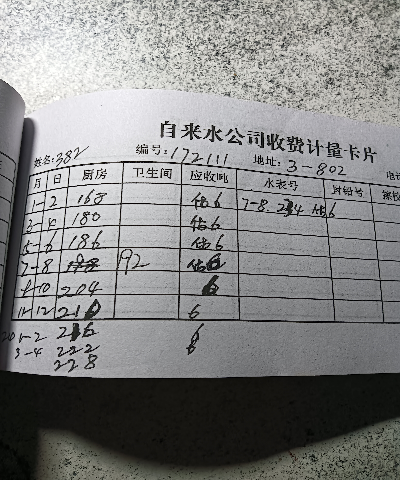 自来水公司收费计量卡片
姓名:382 编号:172111 地址:3-802
月 日 厨房 卫生间 应收吨 水表号 封铅号
1-2 168 估6 7-8 估6
3-4 180 估6
5-6 186 估6
7-8 192 估6
9-10 204 6
11-12 210 6
1-2 216 6
3-4 222 6
228